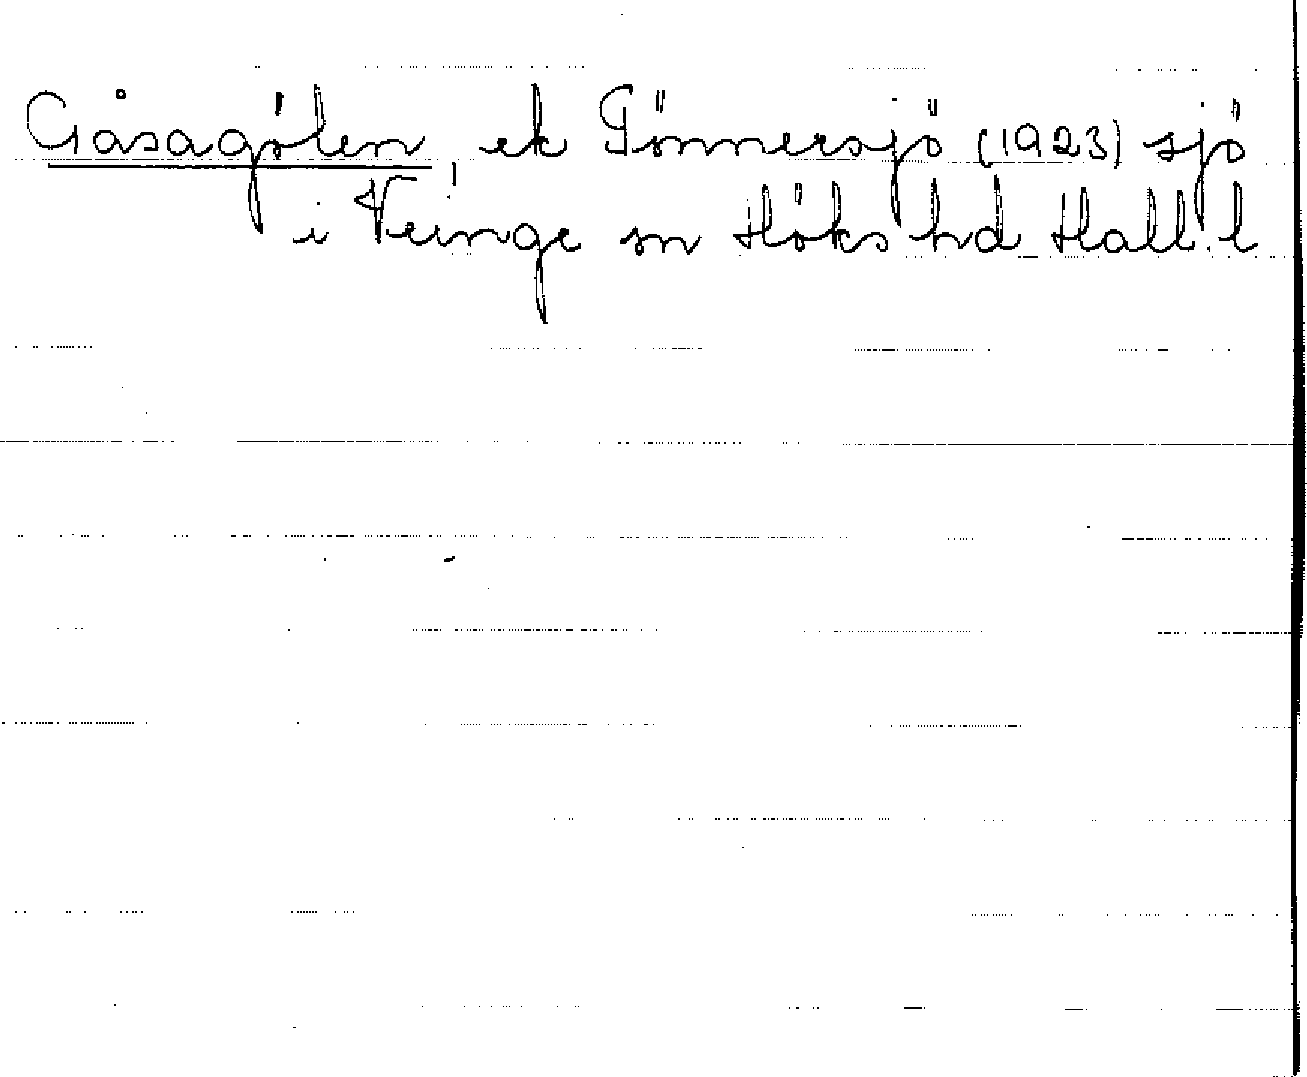 Gåsagölen, ek Tönnersjö (1923) sjö
i Veinge sn Höks hd Hall. l